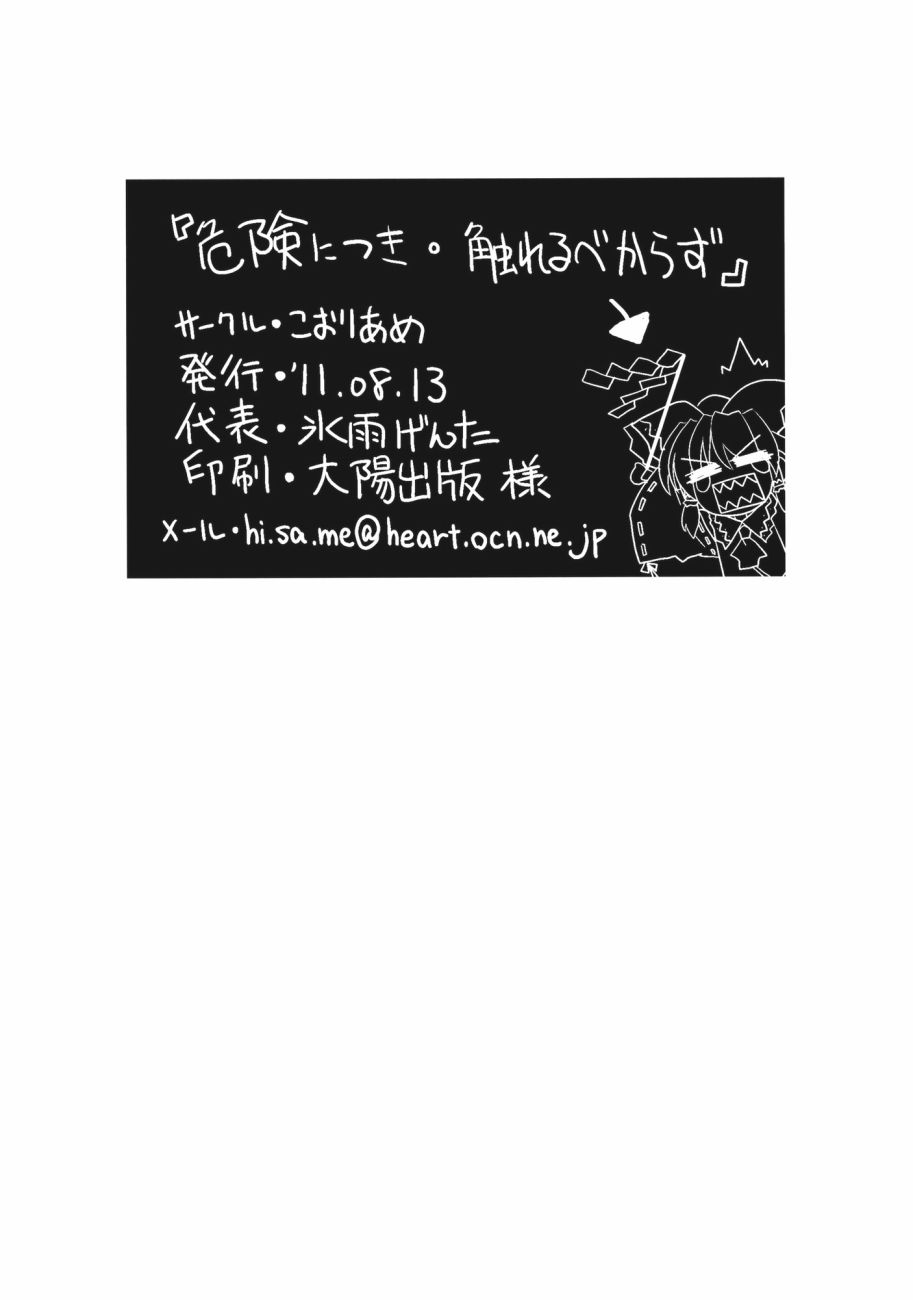 『危険につき・触れるべからず』
サークル・こおりあめ
発行・'11.08.13
代表・氷雨げんた
印刷・大陽出版 様
メール・hi.sa.me@heart.ocn.ne.jp